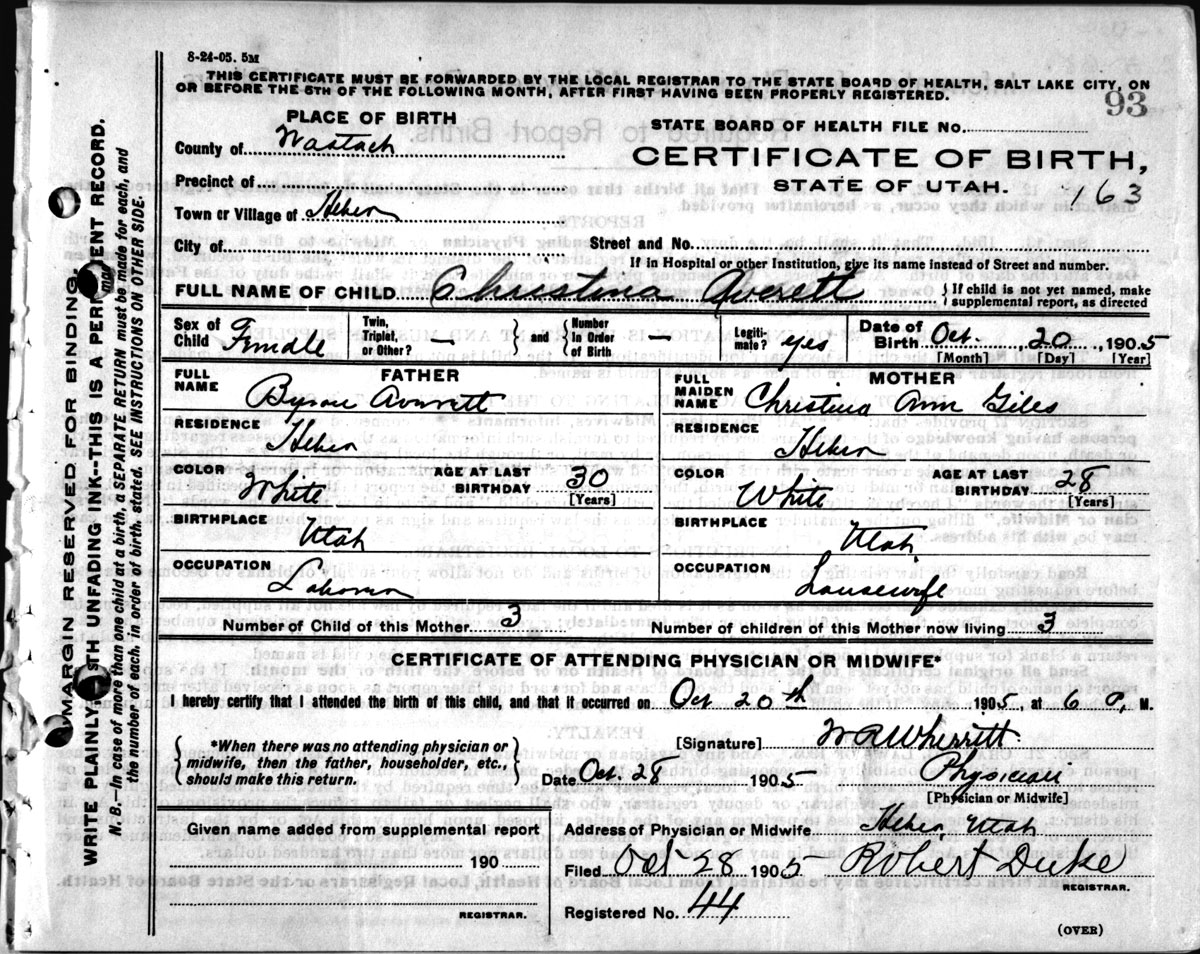 8-24-05. 5M
THIS CERTIFICATE MUST BE FORWARDED BY THE LOCAL REGISTRAR TO THE STATE BOARD OF HEALTH, SALT LAKE CITY, ON
OR BEFORE THE 5TH OF THE FOLLOWING MONTH, AFTER FIRST HAVING BEEN PROPERLY REGISTERED.
93
PLACE OF BIRTH
STATE BOARD OF HEALTH FILE No.
County of Wasatch
CERTIFICATE OF BIRTH,
Precinct of
STATE OF UTAH. 163
Town or Village of Heber
City of Street and No.
If in Hospital or other Institution, give its name instead of Street and number.
FULL NAME OF CHILD Christina Averett } If child is not yet named, make supplemental report, as directed
Sex of Child Female Twin, Triplet, or Other? — } and { Number In Order of Birth — Legitimate? yes Date of Birth Oct. 20, 1905
[Month] [Day] [Year]
FATHER MOTHER
FULL NAME Byron Averett FULL MAIDEN NAME Christina Ann Giles
RESIDENCE Heber RESIDENCE Heber
COLOR White AGE AT LAST BIRTHDAY 30 [Years] COLOR White AGE AT LAST BIRTHDAY 28 [Years]
BIRTHPLACE Utah BIRTHPLACE Utah
OCCUPATION Laborer OCCUPATION Housewife
Number of Child of this Mother 3 Number of children of this Mother now living 3
CERTIFICATE OF ATTENDING PHYSICIAN OR MIDWIFE*
I hereby certify that I attended the birth of this child, and that it occurred on Oct 20th 1905, at 6 a. M.
{ *When there was no attending physician or midwife, then the father, householder, etc., should make this return. }
[Signature] W R Wherritt
Date Oct. 28 1905 Physician
[Physician or Midwife]
Given name added from supplemental report
190
REGISTRAR.
Address of Physician or Midwife Heber, Utah
Filed Oct 28 1905 Robert Duke
REGISTRAR.
Registered No. 44
(OVER)
MARGIN RESERVED FOR BINDING.
WRITE PLAINLY WITH UNFADING INK--THIS IS A PERMANENT RECORD.
N. B.—In case of more than one child at a birth, a SEPARATE RETURN must be made for each, and
the number of each, in order of birth, stated. SEE INSTRUCTIONS ON OTHER SIDE.